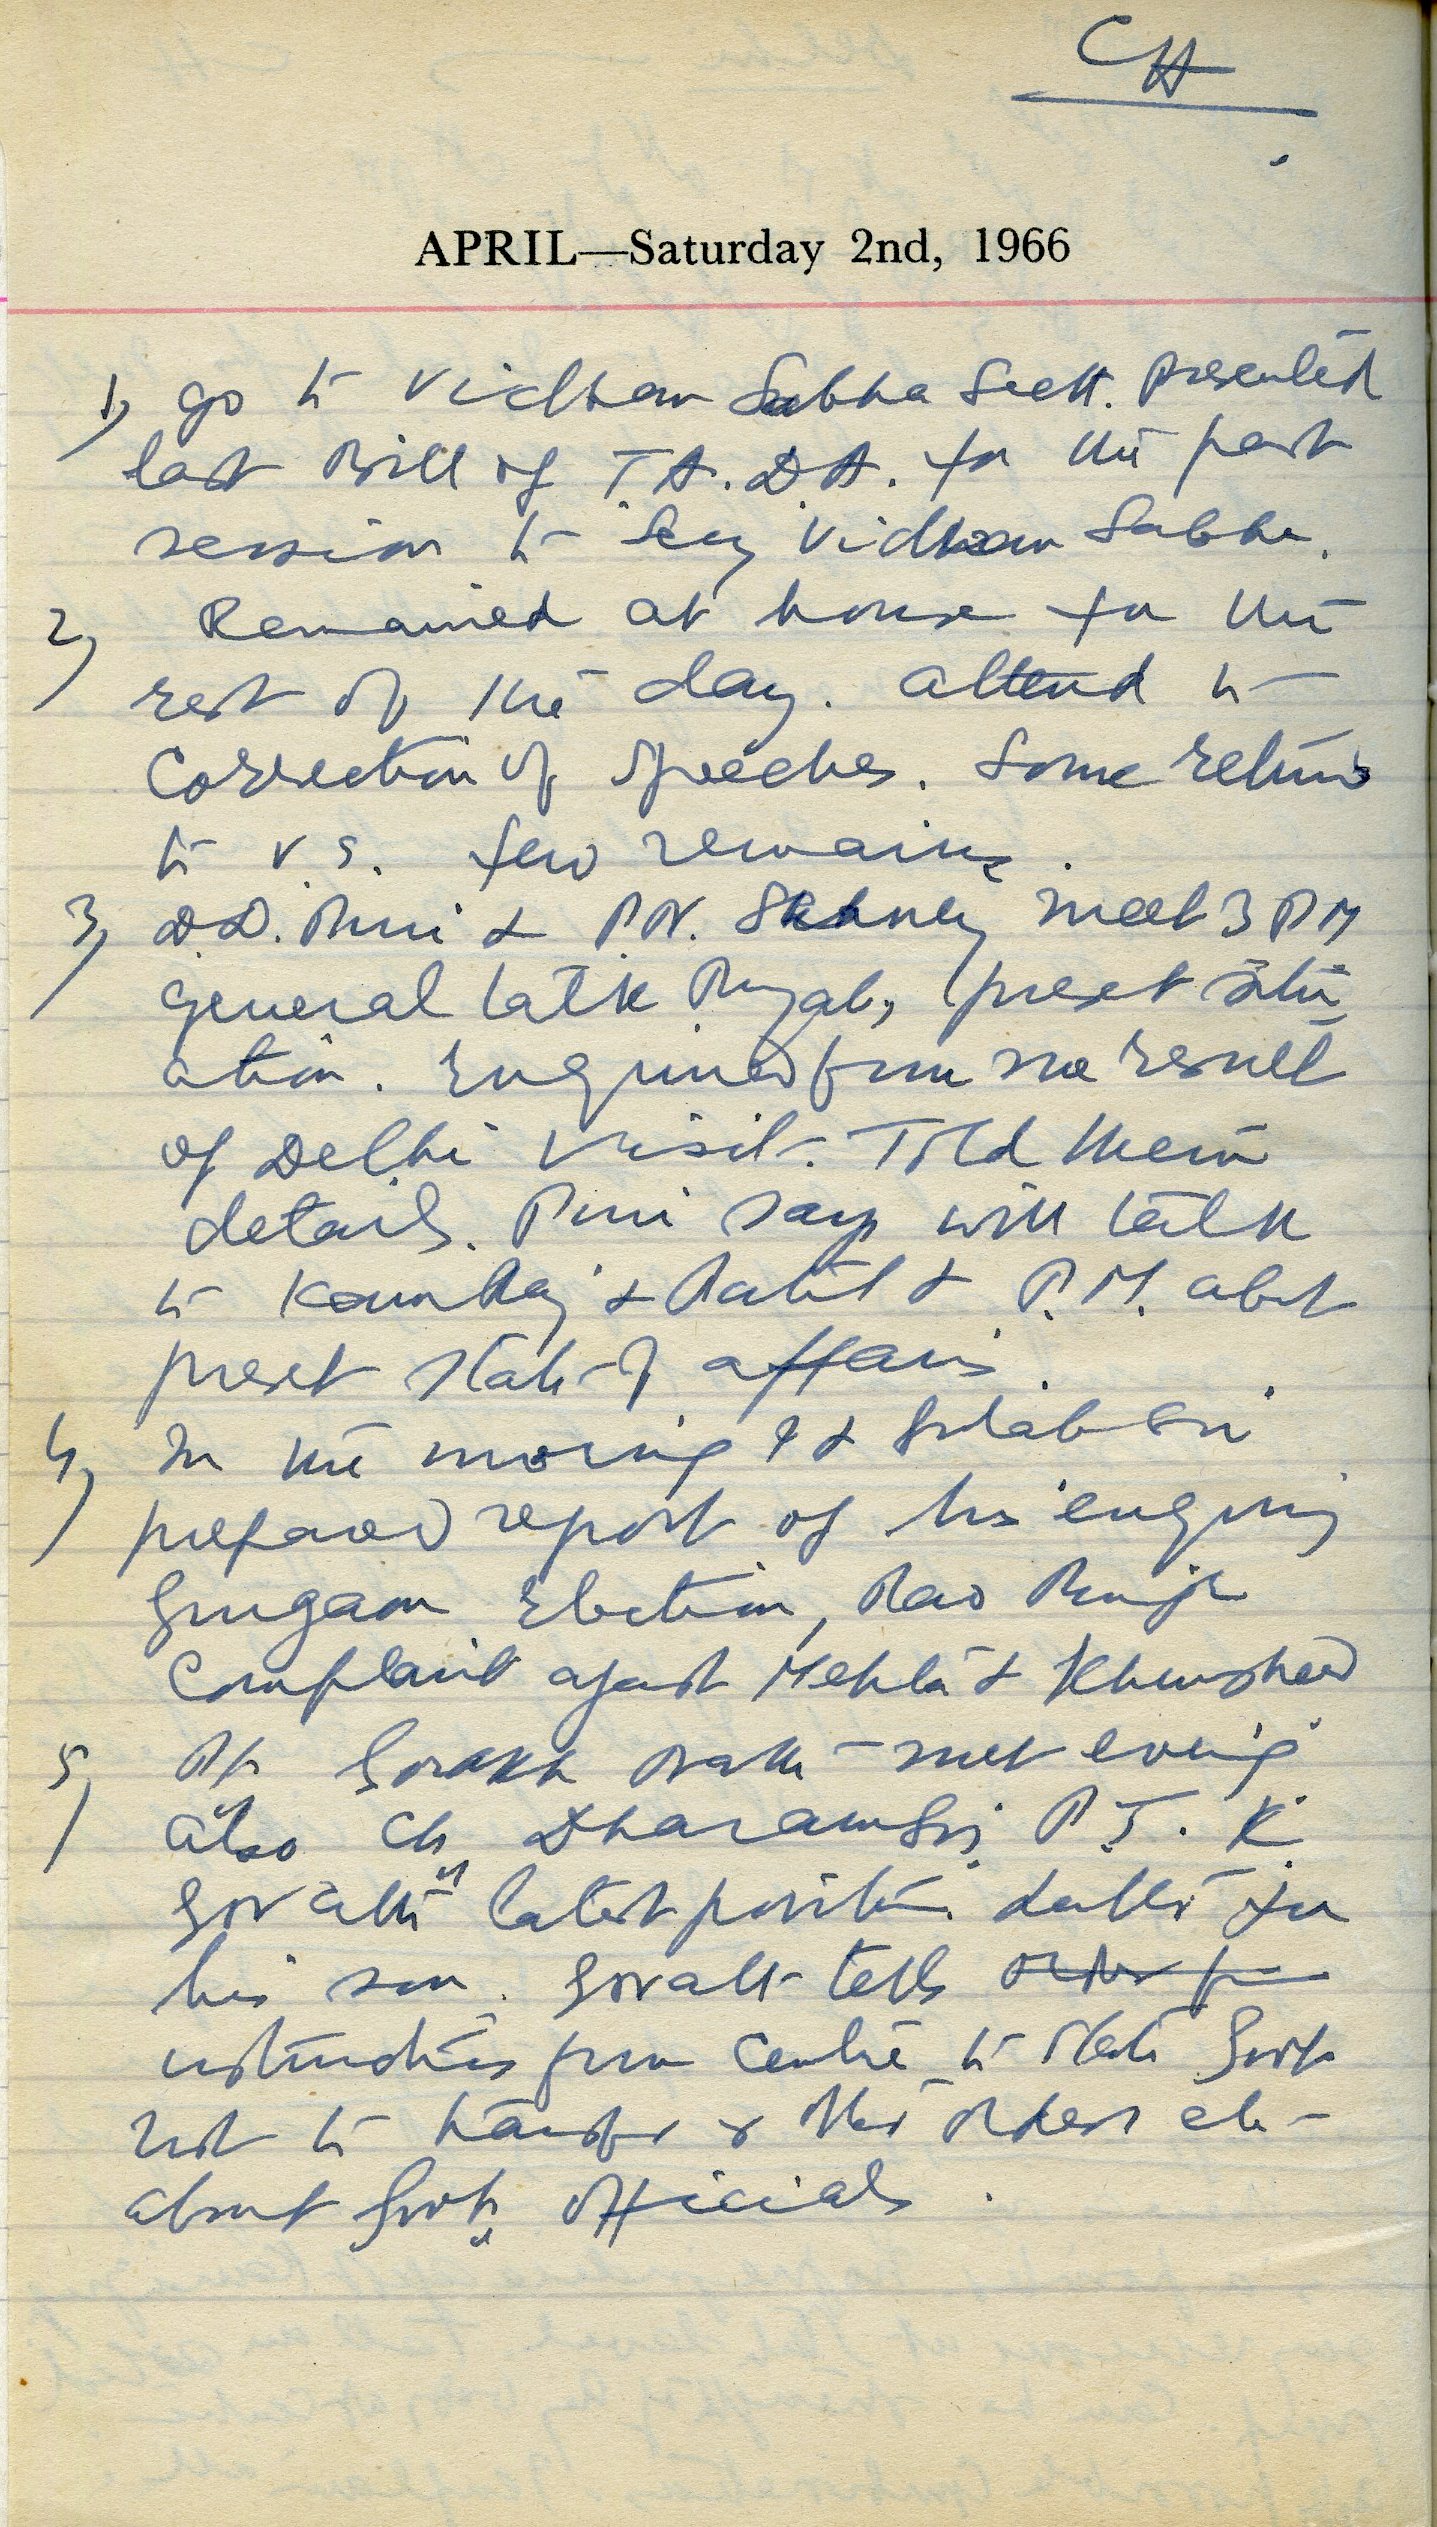 CH
APRIL—Saturday 2nd, 1966
1) go to Vidhan Sabha Sectt. Presented
last Bill of T.A. D.A. for the past
session to Secy Vidhan Sabha.
2) Remained at house for the
rest of the day. attend to
Correction of Speeches. Some returns
to V.S. few remains.
3) D.D. Puri & P.N. Sahney meet 3 PM
general talk Punjab, present situ
ation. Enquired from me result
of Delhi visit. Told them
details. Puri says will talk
to Kamraj & Patil & P.M. abt
present state of affairs
4) In the morning I & Gulab Singh
prepared report of his enquiry
Gurgaon Election,
Complaint against Mehta & Khurshed
5) Pt Gorakh Nath met evening
also Ch Dharam Singh P.T. K.
latest position
his son. tells
instructions from Centre to State Govt
not to transfer & other orders etc
about Govt officials.